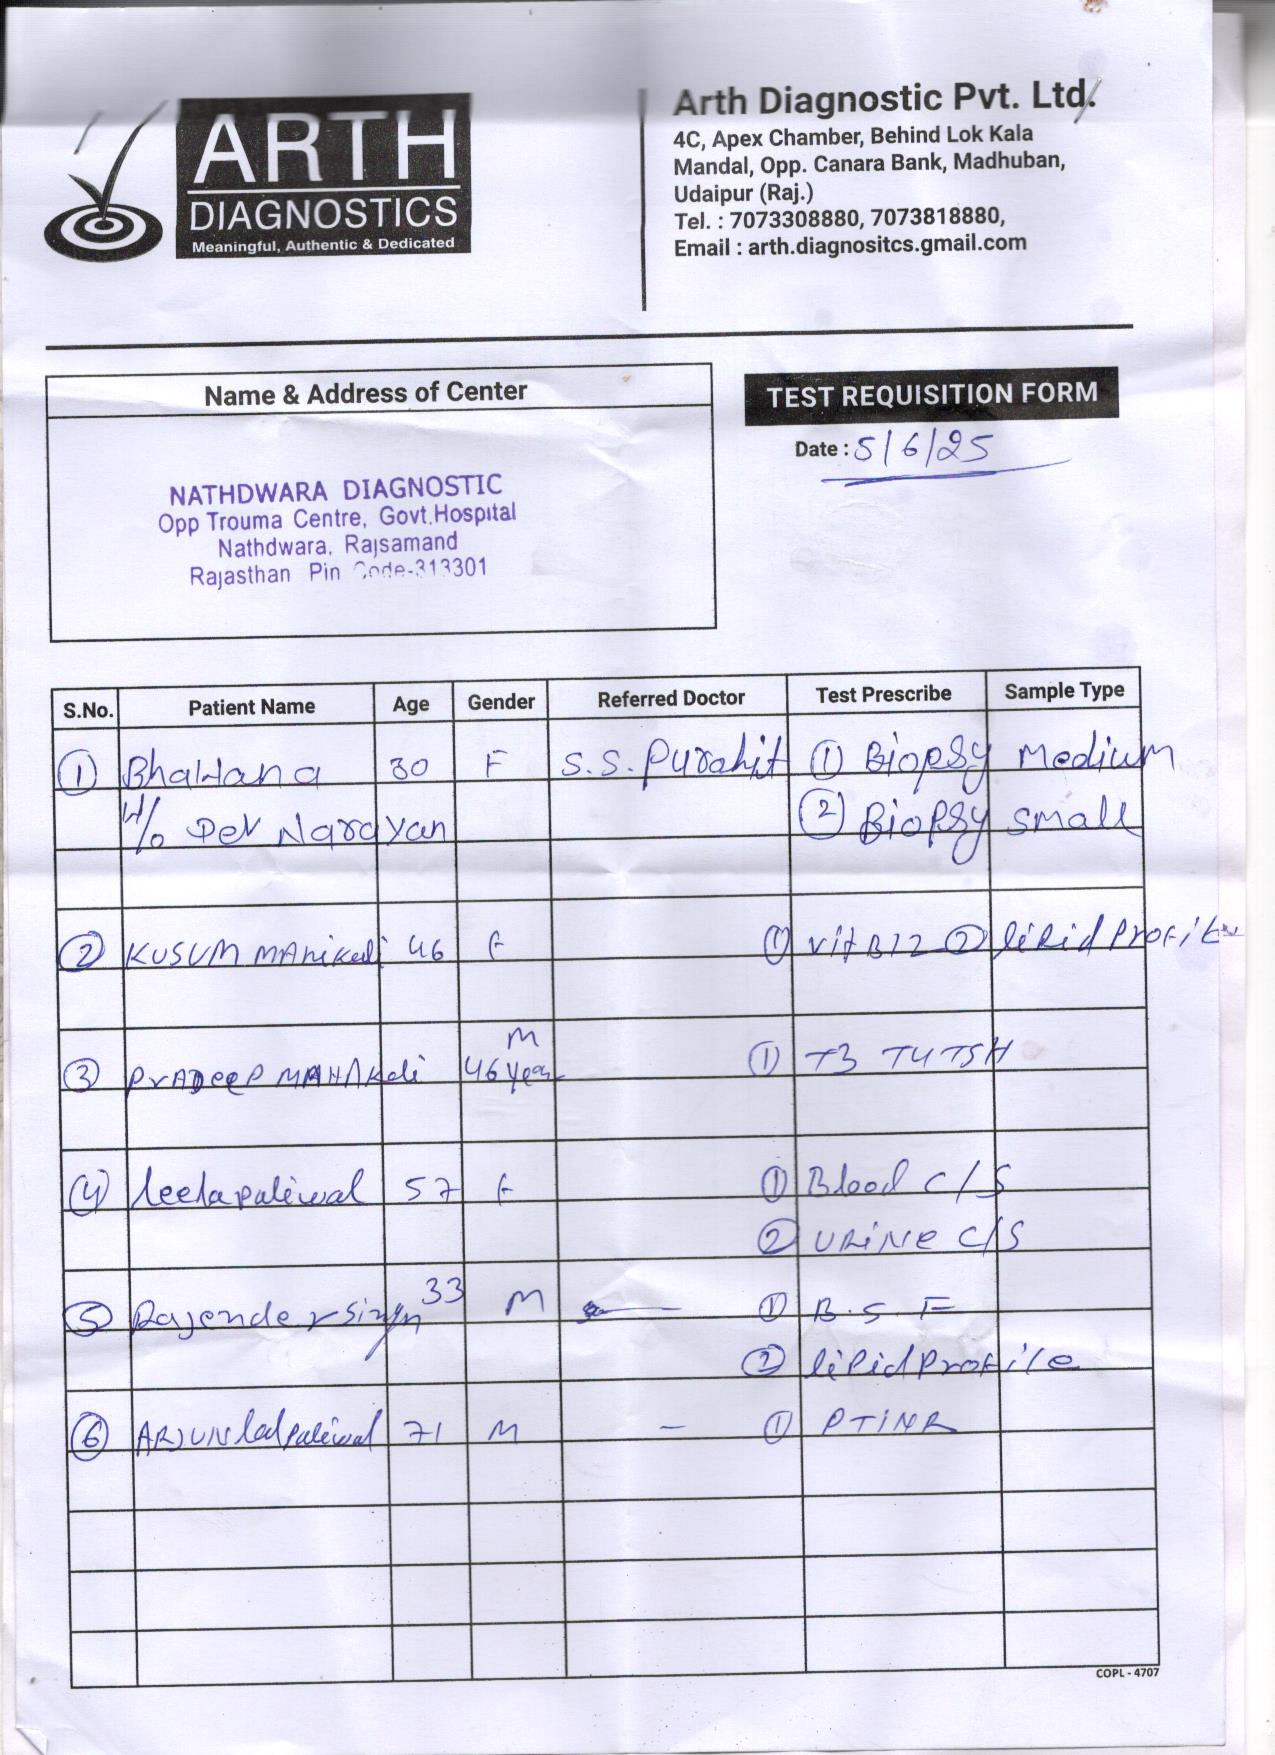 ARTH
DIAGNOSTICS
Meaningful, Authentic & Dedicated
Arth Diagnostic Pvt. Ltd.
4C, Apex Chamber, Behind Lok Kala
Mandal, Opp. Canara Bank, Madhuban,
Udaipur (Raj.)
Tel. : 7073308880, 7073818880,
Email : arth.diagnositcs.gmail.com
Name & Address of Center
TEST REQUISITION FORM
Date : 5/6/25
NATHDWARA DIAGNOSTIC
Opp Trouma Centre, Govt.Hospital
Nathdwara, Rajsamand
Rajasthan Pin Code-313301
S.No. Patient Name Age Gender Referred Doctor Test Prescribe Sample Type
① Bhawana 30 F S.S. Purohit ① Biopsy Medium
W/o Dev Narayan ② Biopsy small
② KUSUM 46 F ① vit B12 ② lipid Profile
M
③ PRADeeP 46 year ① T3 T4 TSH
④ leela paliwal 57 F ① Blood C/S
② URiNe C/S
⑤ Rajender Singh 33 M — ① B.S.F
② lipid Profile
⑥ ARJUN lal paliwal 71 M — ① PTINR
COPL - 4707